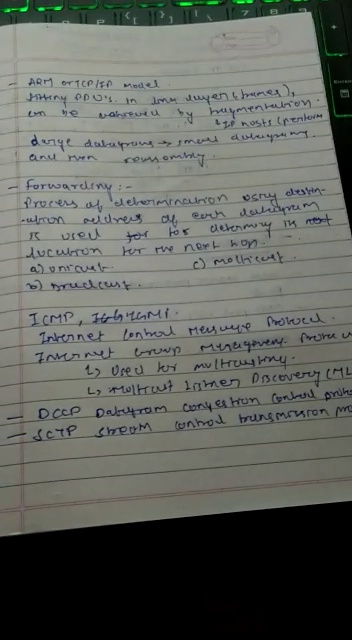 - ARM or TCP/IP model.
PDU's in link layer (frames),
can be achieved by fragmentation.
↳ IP hosts (perform
large datagrams → small datagrams
and then reassembly.
- Forwarding :-
Process of determination using destin-
-ation address of each datagram
is used for to determing its next
location for the next hop.
a) unicast. c) multicast.
b) broadcast.
ICMP, IGMP.
Internet Control Message Protocol.
Internet Group Management
↳ Used for multicasting.
↳ multicast listner Discovery (ML
- DCCP Datagram congestion control
- SCTP stream control transmission